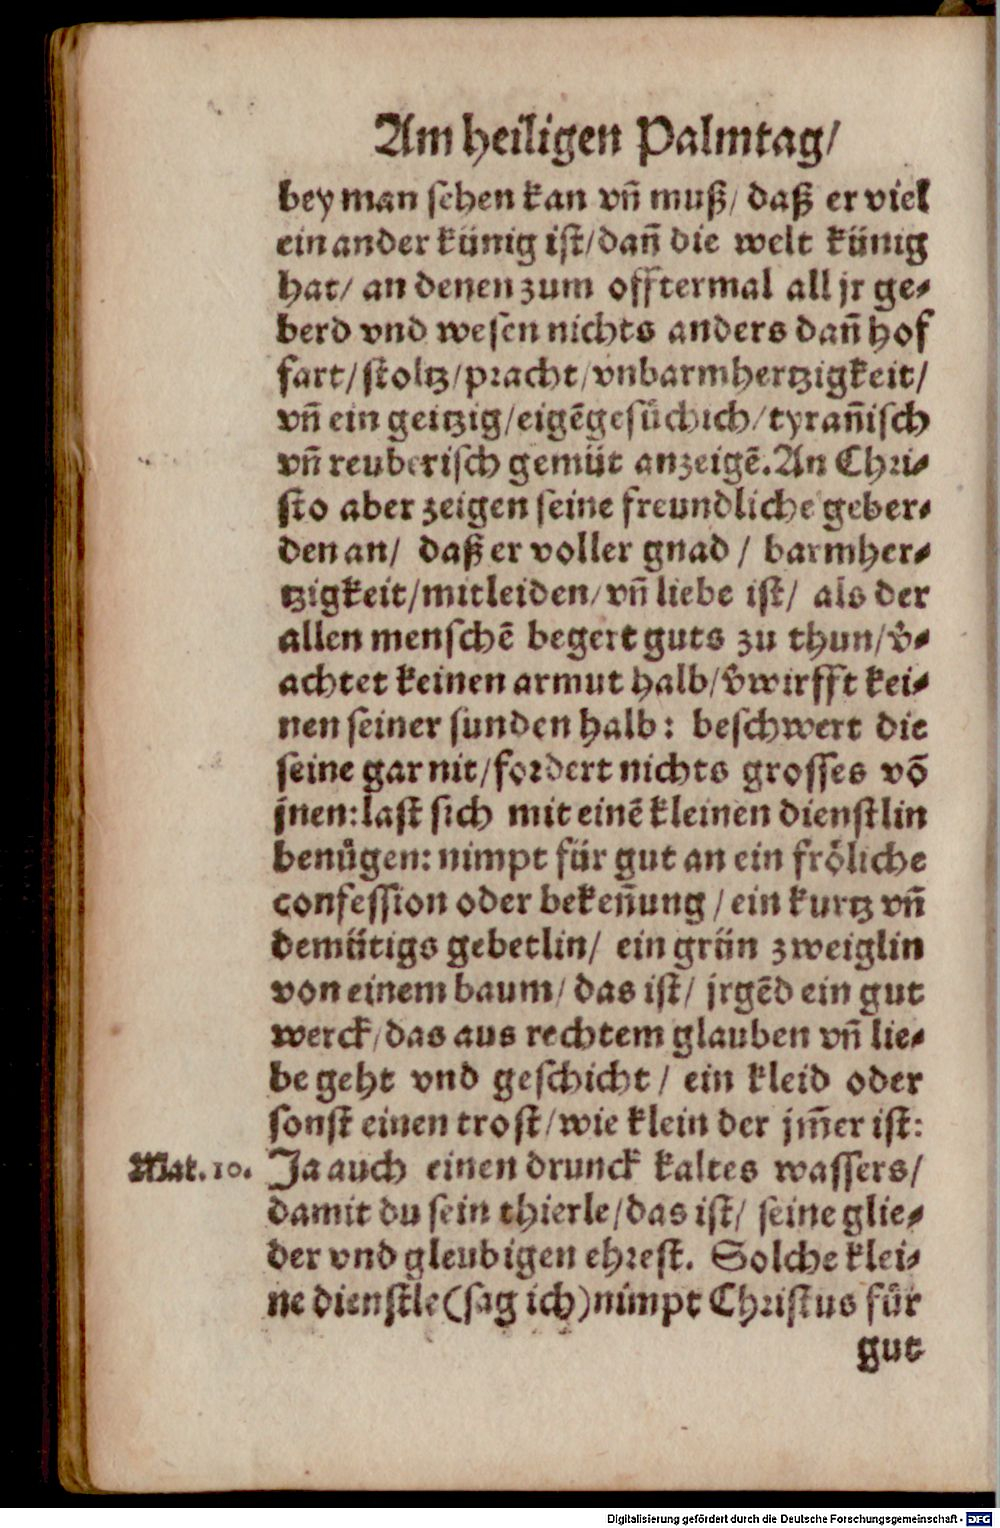 Am heiligen Palmtag/
bey man sehen kan vñ muß/ daß er viel
ein ander künig ist/dañ die welt künig
hat/ an denen zum offtermal all jr ge⸗
berd vnd wesen nichts anders dañ hof
fart/stoltz/pracht/vnbarmhertzigkeit/
vñ ein geitzig/eigẽgesüchich/tyrañisch
vñ reuberisch gemüt anzeigẽ. An Chri⸗
sto aber zeigen seine freundliche geber⸗
den an/ daß er voller gnad / barmher⸗
tzigkeit/mitleiden/vñ liebe ist/ als der
allen menschẽ begert guts zu thun/v̈⸗
achtet keinen armut halb/v̈wirfft kei⸗
nen seiner sunden halb: beschwert die
seine gar nit/fordert nichts grosses võ
jnen: last sich mit einẽ kleinen dienstlin
benůgen: nimpt für gut an ein fröliche
confession oder bekeñung / ein kurtz vñ
demütigs gebetlin/ ein grün zweiglin
von einem baum/ das ist/ jrgẽd ein gut
werck/das aus rechtem glauben vñ lie⸗
be geht vnd geschicht / ein kleid oder
sonst einen trost/wie klein der jm̃er ist:
Mat. 10. Ja auch einen drunck kaltes wassers/
damit du sein thierle/das ist/ seine glie⸗
der vnd gleubigen ehrest. Solche klei⸗
ne dienstle (sag ich) nimpt Christus für
gut
Digitalisierung gefördert durch die Deutsche Forschungsgemeinschaft - DFG